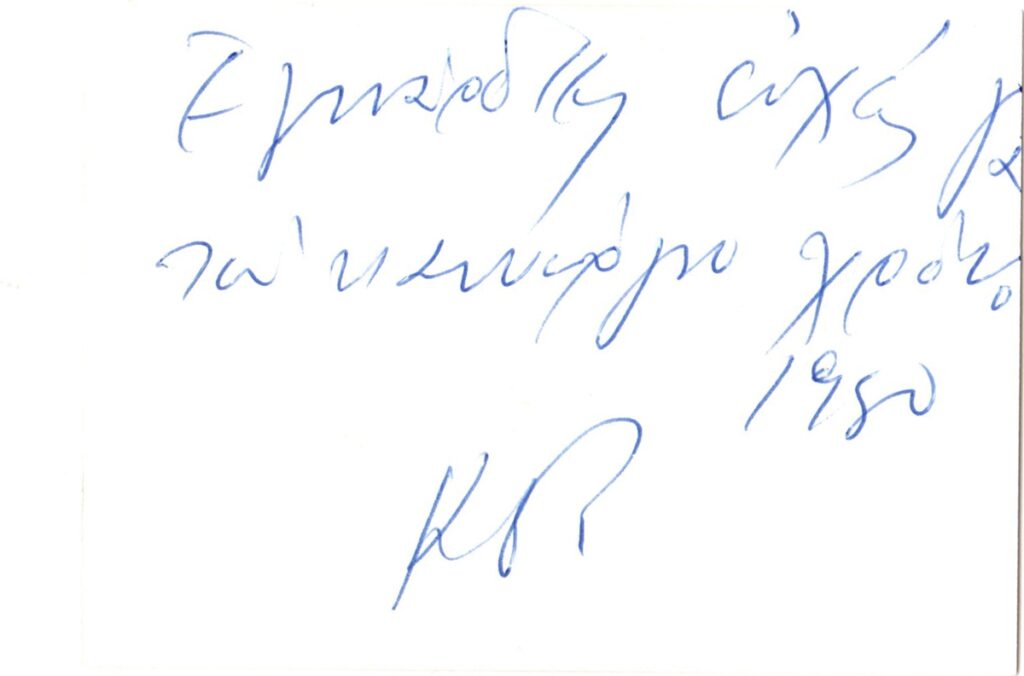 Ἐγκάρδιες εὐχές γιὰ
τὸν καινούργιο χρόνο
1980